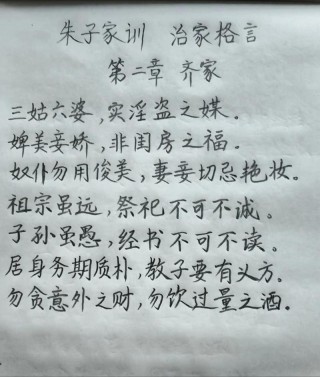 朱子家训 治家格言
第二章 齐家
三姑六婆,实淫盗之媒。
婢美妾娇,非闺房之福。
奴仆勿用俊美,妻妾切忌艳妆。
祖宗虽远,祭祀不可不诚。
子孙虽愚,经书不可不读。
居身务期质朴,教子要有义方。
勿贪意外之财,勿饮过量之酒。